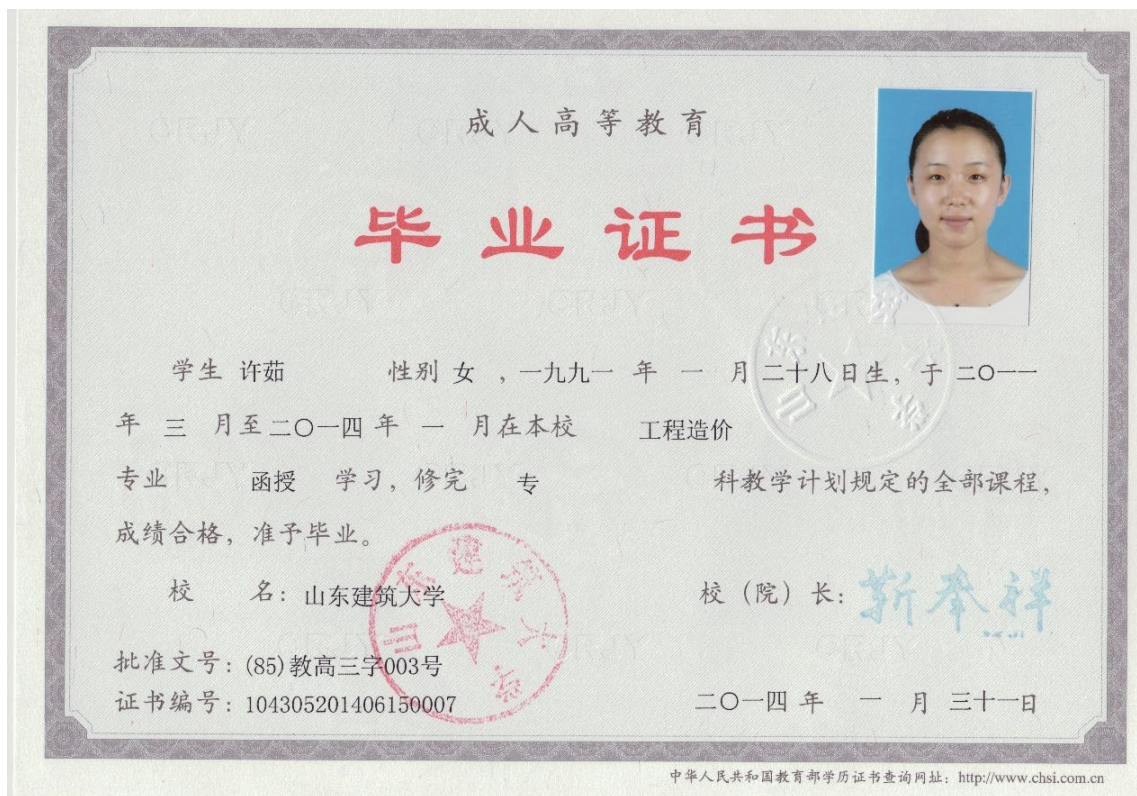 成人高等教育
毕业证书
学生 许茹 性别 女 ，一九九一 年 一 月 二十八日生，于 二〇一一
年 三 月至 二〇一四 年 一 月在本校 工程造价
专业 函授 学习，修完 专 科教学计划规定的全部课程，
成绩合格，准予毕业。
校 名：山东建筑大学
校（院）长：靳奉祥
山东建筑大学
批准文号：(85)教高三字003号
证书编号：104305201406150007
二〇一四 年 一 月 三十一日
中华人民共和国教育部学历证书查询网址：http://www.chsi.com.cn